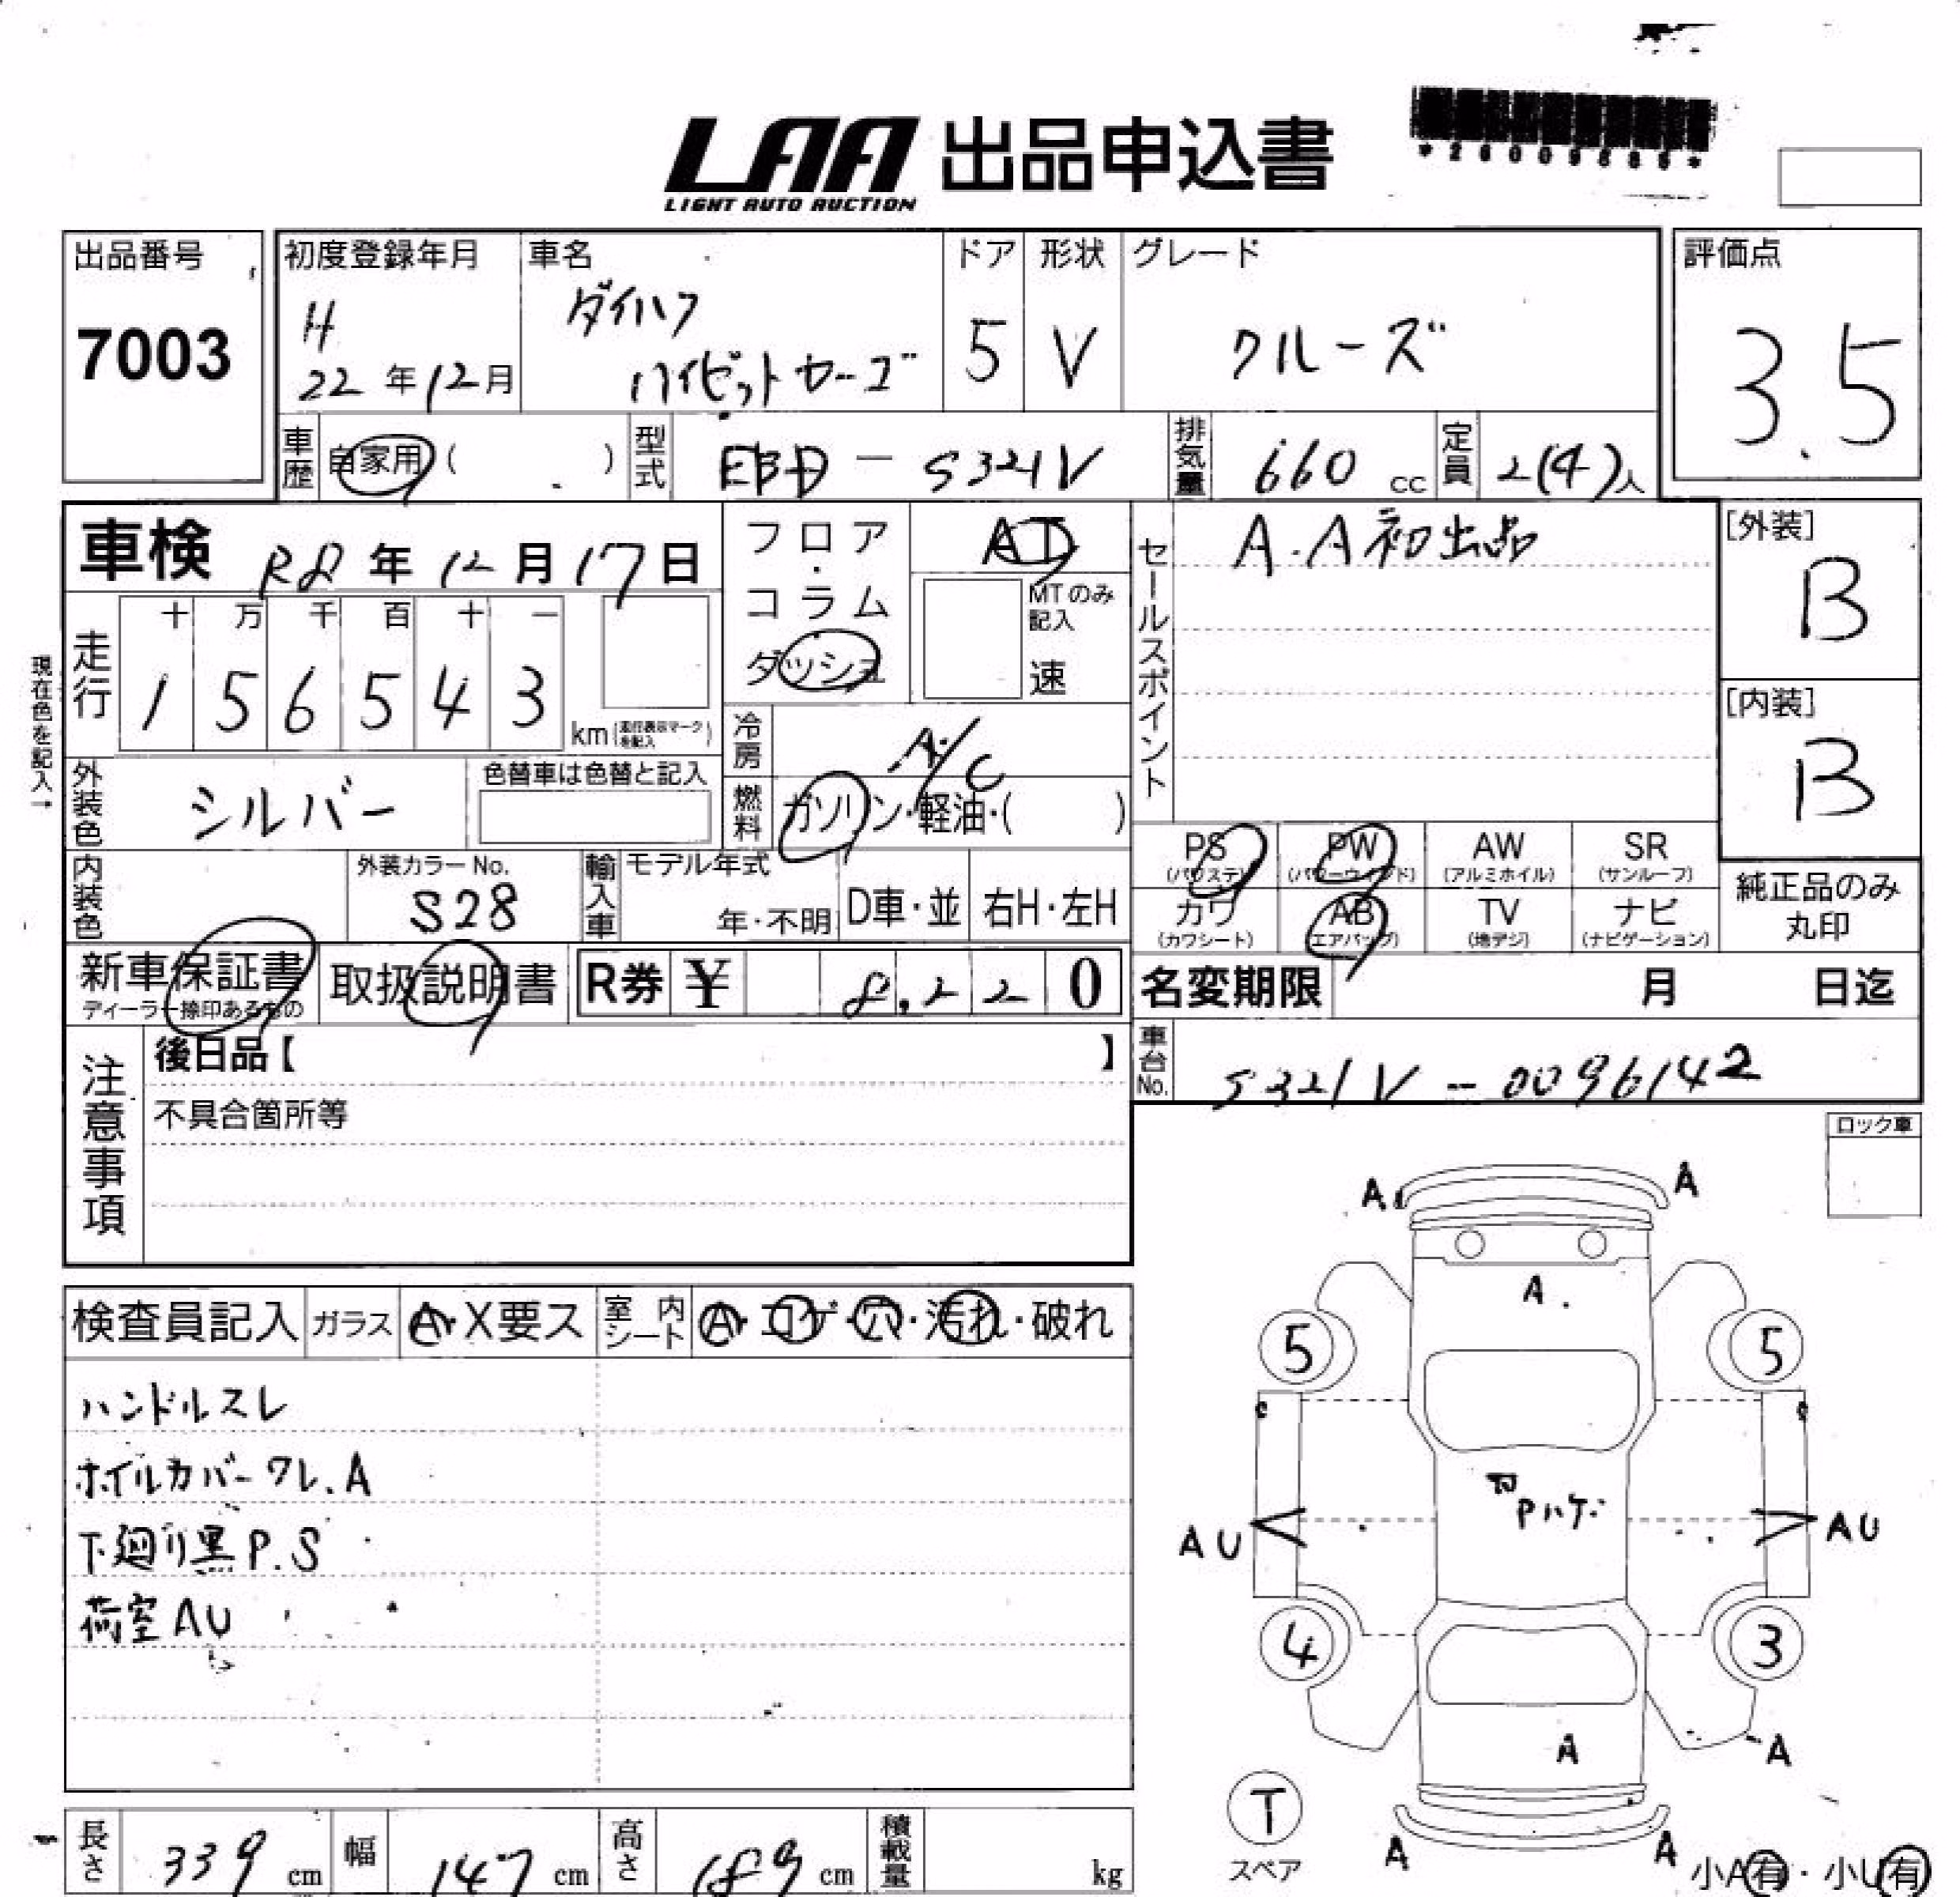 LAA 出品申込書
LIGHT AUTO AUCTION
出品番号
7003
初度登録年月
H
22年12月
車名
ダイハツ
ハイゼットカーゴ
ドア
5
形状
V
グレード
クルーズ
評価点
3.5
車歴 自家用( )
型式 EBD-S321V
排気量 660cc
定員 2(4)人
車検 R8年12月17日
フロア・コラム
ダッシュ
AT
MTのみ記入
速
セールスポイント
A.A初出品
[外装]
B
[内装]
B
現在色を記入→
走行
十 万 千 百 十 一
1 5 6 5 4 3 km(走行表示マークを記入)
冷房 A/C
燃料 ガソリン・軽油・( )
外装色 シルバー
色替車は色替と記入
内装色
外装カラーNo.
S28
輸入車
モデル年式
年・不明
D車・並
右H・左H
PS (パワステ)
PW (パワーウインド)
AW (アルミホイル)
SR (サンルーフ)
カワ (カワシート)
AB (エアバッグ)
TV (地デジ)
ナビ (ナビゲーション)
純正品のみ
丸印
新車保証書
ディーラー捺印あるもの
取扱説明書
R券 ¥ 8,220
名変期限 月 日迄
車台No. S321V-0096142
注意事項
後日品【 】
不具合箇所等
ロック車
検査員記入
ガラス A・X要ス
室内シート A・コゲ・穴・汚れ・破れ
ハンドルスレ
ホイルカバーワレ.A
下廻り黒P.S
荷室AU
A A
A
5 5
Pハゲ
AU AU
4 3
A
A
T
スペア
A A
小A有・小U有
長さ 339cm
幅 147cm
高さ 189cm
積載量 kg